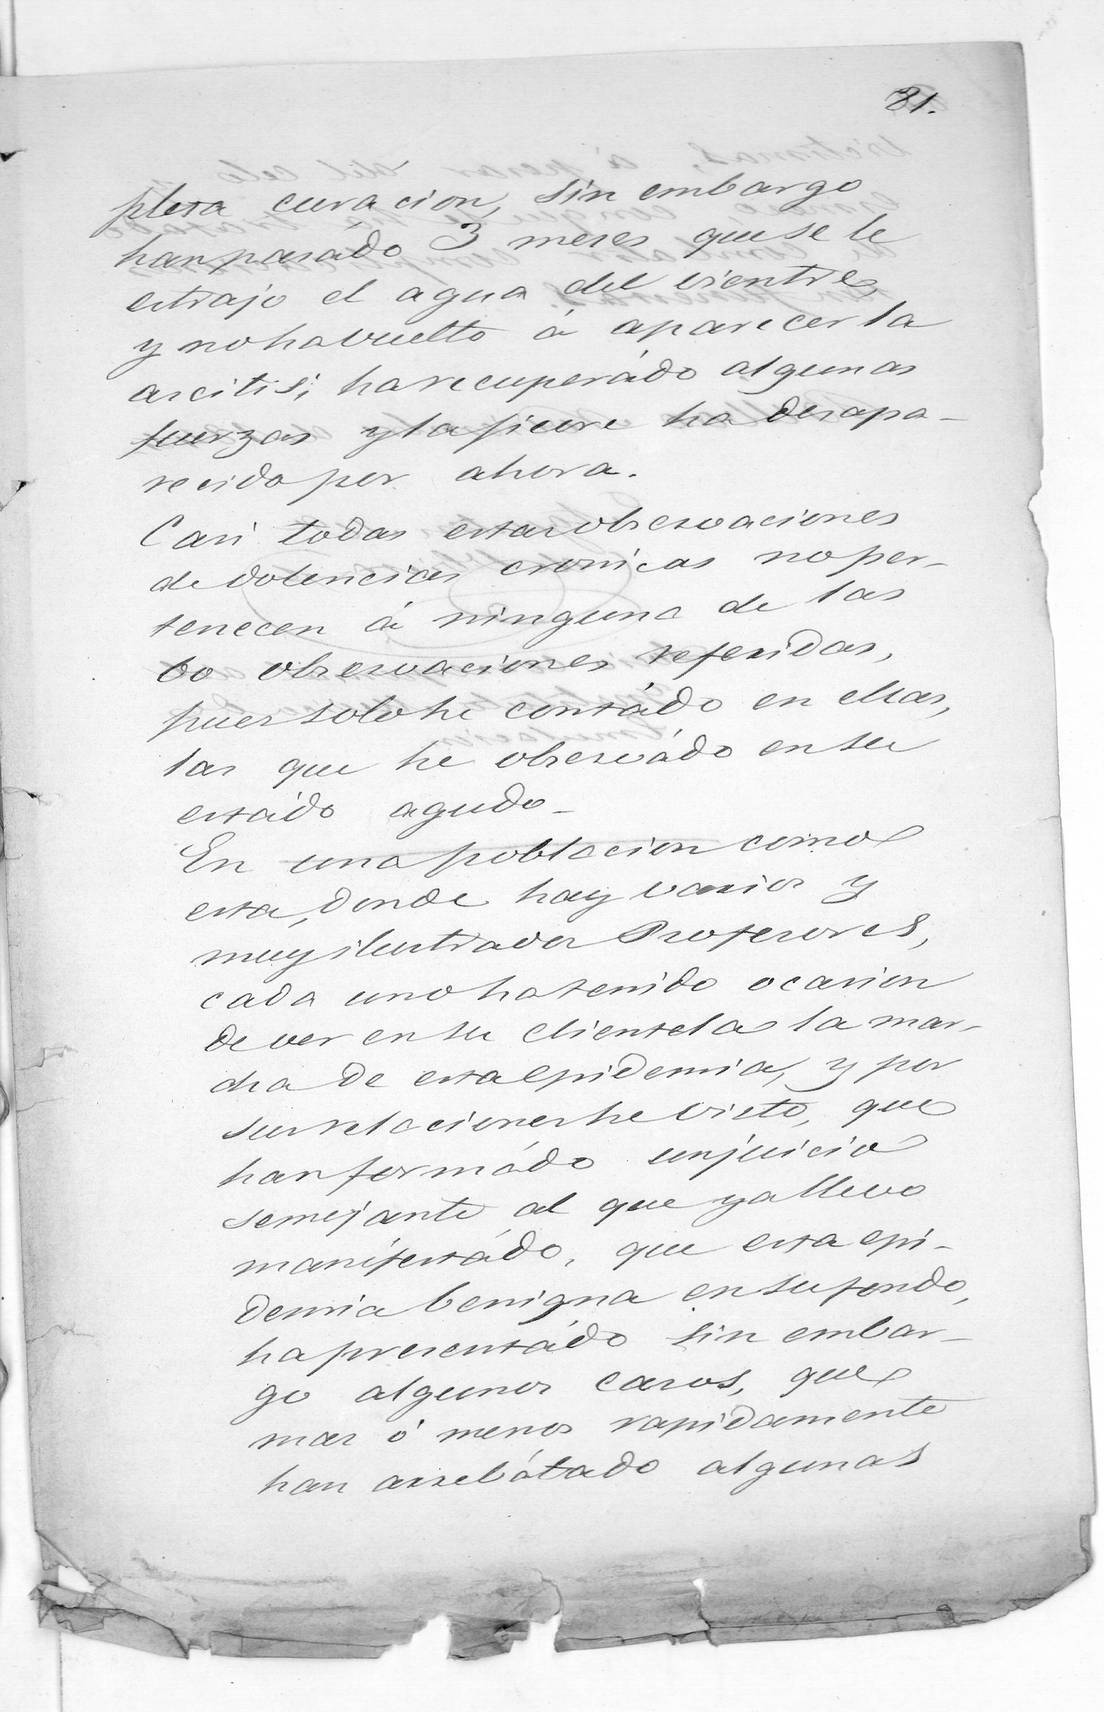 81.
pleta curacion, sin embargo
han pasádo 3 meses que se le
estrajo el agua del vientre
y no ha vuelto á aparecer la
ascitis; ha recuperádo algunas
fuerzas y la fievre ha desapa-
recido por ahora.
Casi todas estas observaciones
de dolencias cronicas no per-
tenecen á ninguna de las
60 observaciones referidas,
pues solo he contádo en ellas,
las que he observádo en su
estádo agudo-
En una poblacion como
esta, donde hay varios y
muy ilustrados Profesores,
cada uno ha tenido ocasion
de ver en su clientela la mar-
cha de esta epidemia, y por
sus relaciones he visto, que
han formádo un juicio
semejante al que ya llevo
manifestádo, que esta epi-
demia benigna en su fondo,
ha presentádo sin embar-
go algunos casos, que
mas ó menos rapidamente
han arrebátado algunas